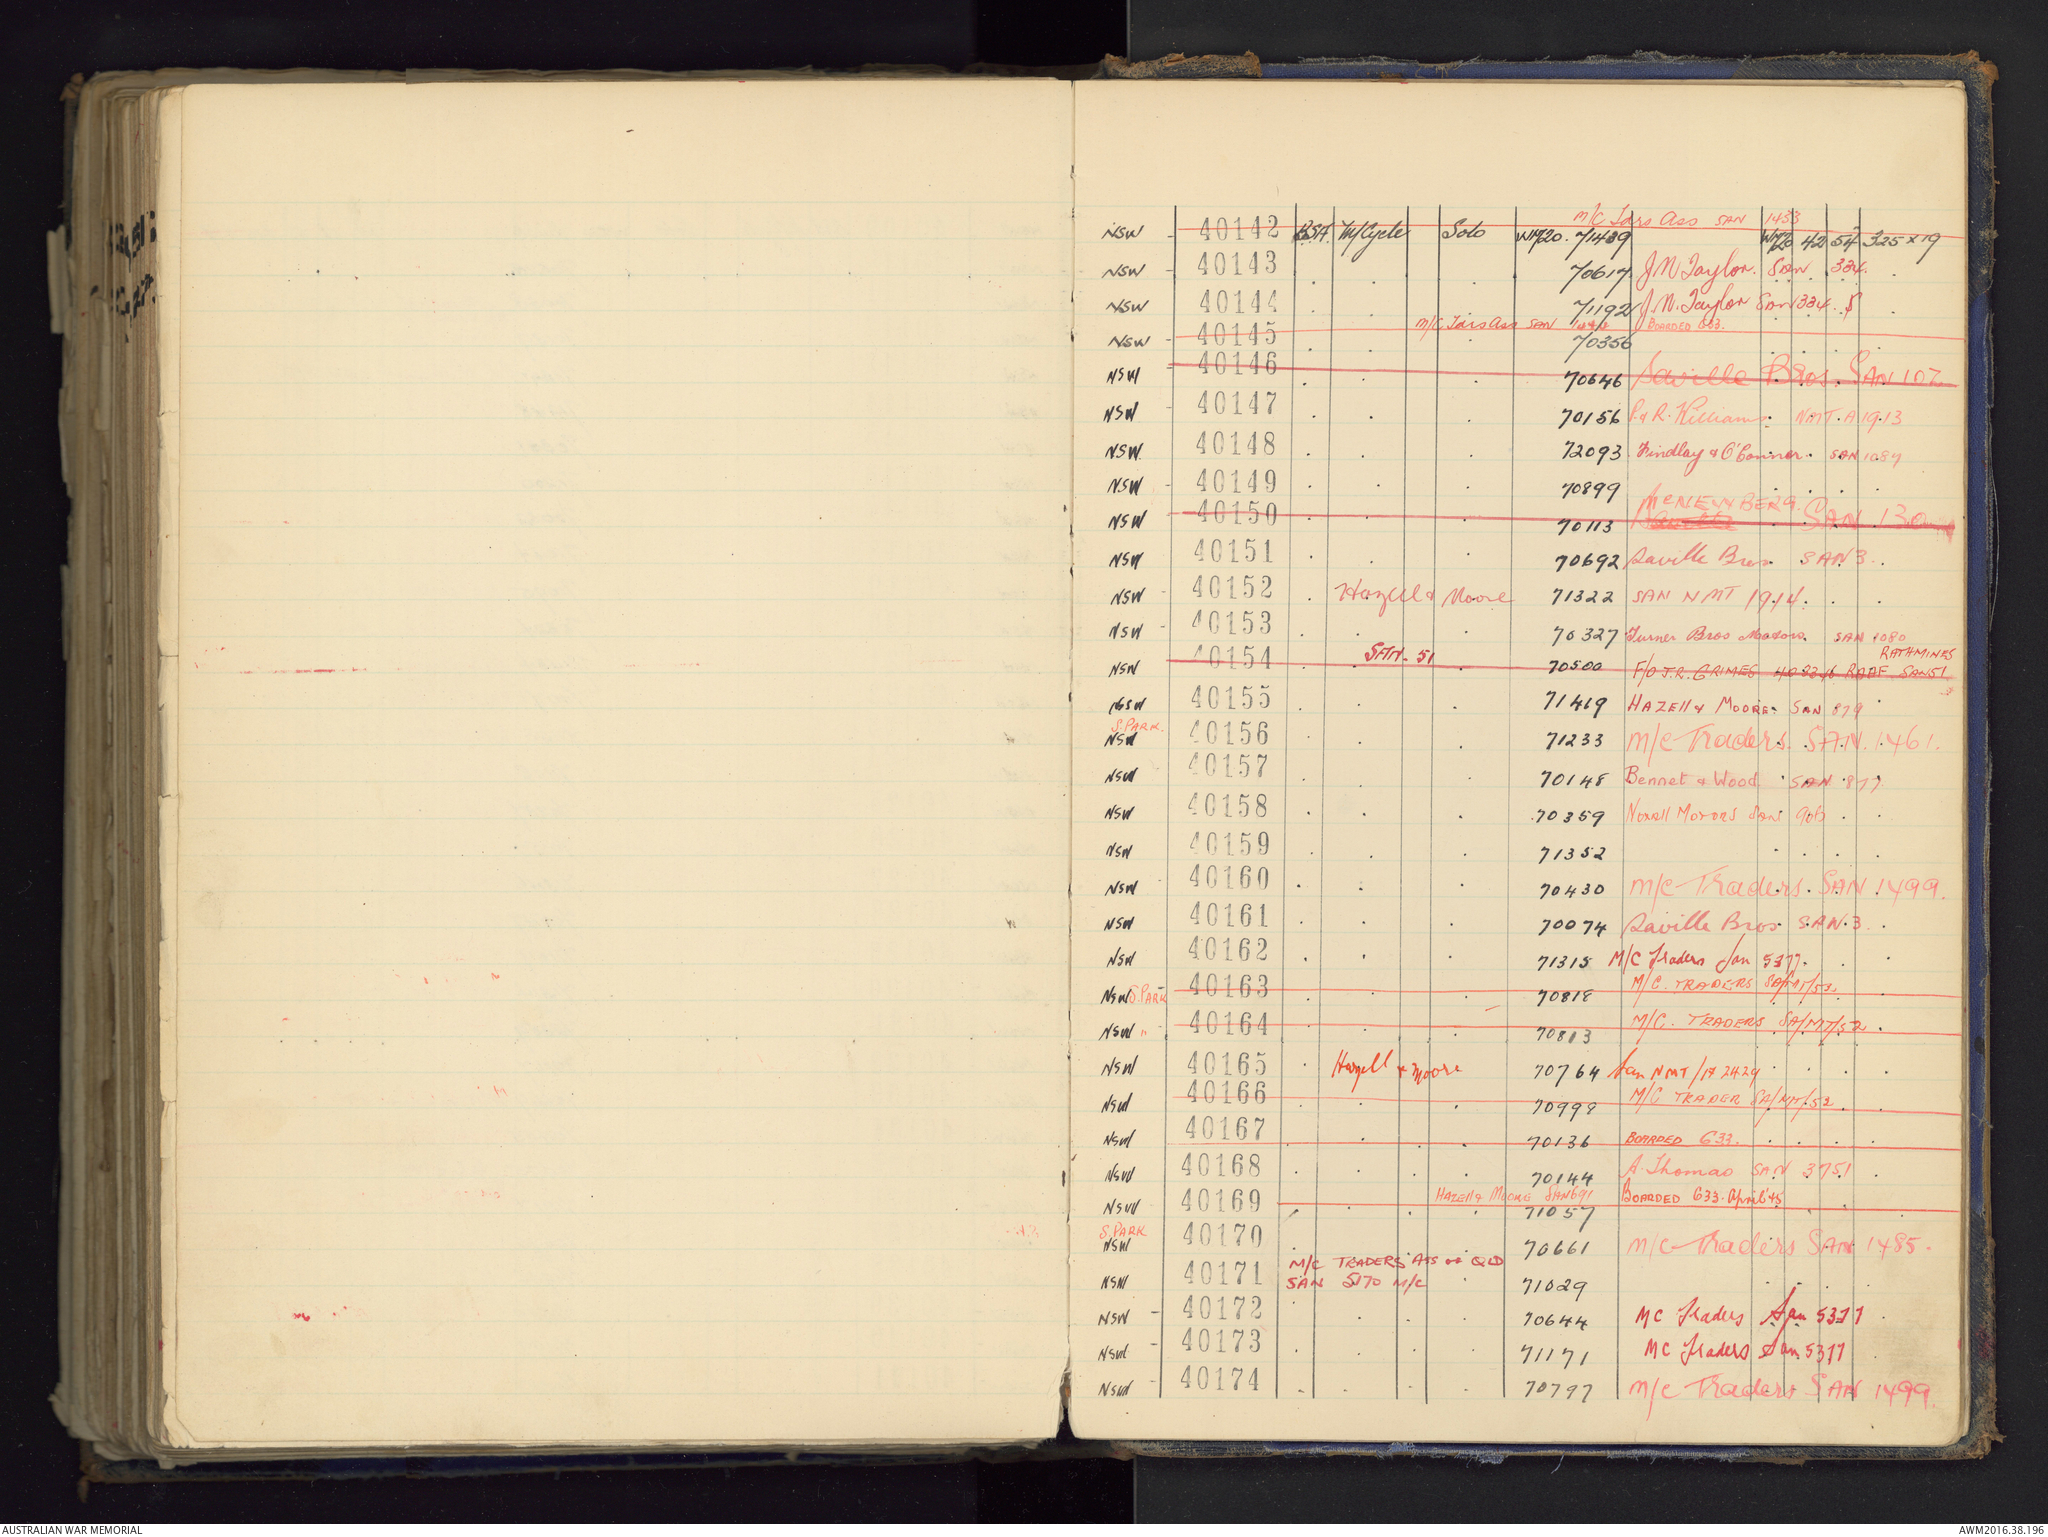 M/C Tdrs Ass SAN 1433
NSW - 40142 BSA M/Cycle Solo WM20. 71439 WM20 42 54 325 x 19
NSW - 40143 . . . 70617 J N Taylor. SAN 334.
NSW - 40144 . . . 71192 J. N. Taylor SAN 334.
M/C Tdrs Ass SAN BOARDED 633.
NSW - 40145 . . . 70356
NSW - 40146 . . . 70646 Saville Bros. SAN 107
NSW - 40147 . . . 70156 P. & R. Williams. NMT. A 1913
NSW. - 40148 . . . 72093 Findlay & O'Connor. SAN 1087
NSW - 40149 . . . 70899
McNEW BERG.
NSW - 40150 . . . 70113 SAN 130
NSW 40151 . . . 70692 Saville Bros SAN 3.
NSW - 40152 . Hazell & Moore 71322 SAN NMT 1914.
NSW - 40153 . . . 70327 Turner Bros Motors. SAN 1080
SAN - 51 RATHMINES
NSW 40154 . . . 70500 F/O J.R. GRIMES RAAF SAN51
NSW 40155 . . . 71419 HAZEll & MOORE. SAN 879
S. PARK.
NSW 40156 . . . 71233 M/C Traders. SAN. 1461.
NSW 40157 . . . 70148 Bennet & Wood SAN 877
NSW 40158 . . . 70359 Noxall Motors SAN 906
NSW 40159 . . . 71352
NSW 40160 . . . 70430 M/C Traders. SAN 1499.
NSW 40161 . . . 70074 Saville Bros. SAN. 3.
NSW 40162 . . . 71315 M/C Traders San 5377.
NSW S. PARK 40163 . . . 70818 M/C. TRADERS SA/MT/53.
NSW " 40164 . . . 70813 M/C. TRADERS SA/MT/52.
NSW 40165 . Hazell & Moore 70764 San NMT/A 2429
NSW 40166 . . . 70999 M/C TRADER SA/MT/52
NSW 40167 . . . 70136 BOARDED 633.
NSW 40168 . . . 70144 A. Thomas SAN 3751
HAZEll & MOORE SAN 691 BOARDED 633. April '45
NSW 40169 . . . 71057
S. PARK
NSW 40170 . 70661 M/C Traders SAN 1485.
M/C TRADERS ASS of QLD
NSW 40171 SAN 5170 M/C 71029
NSW - 40172 . . . 70644 MC Traders San 5377
NSW - 40173 . . . 71171 MC Traders San 5377
NSW - 40174 . . . 70797 M/C Traders SAN 1499.
AUSTRALIAN WAR MEMORIAL
AWM2016.38.196